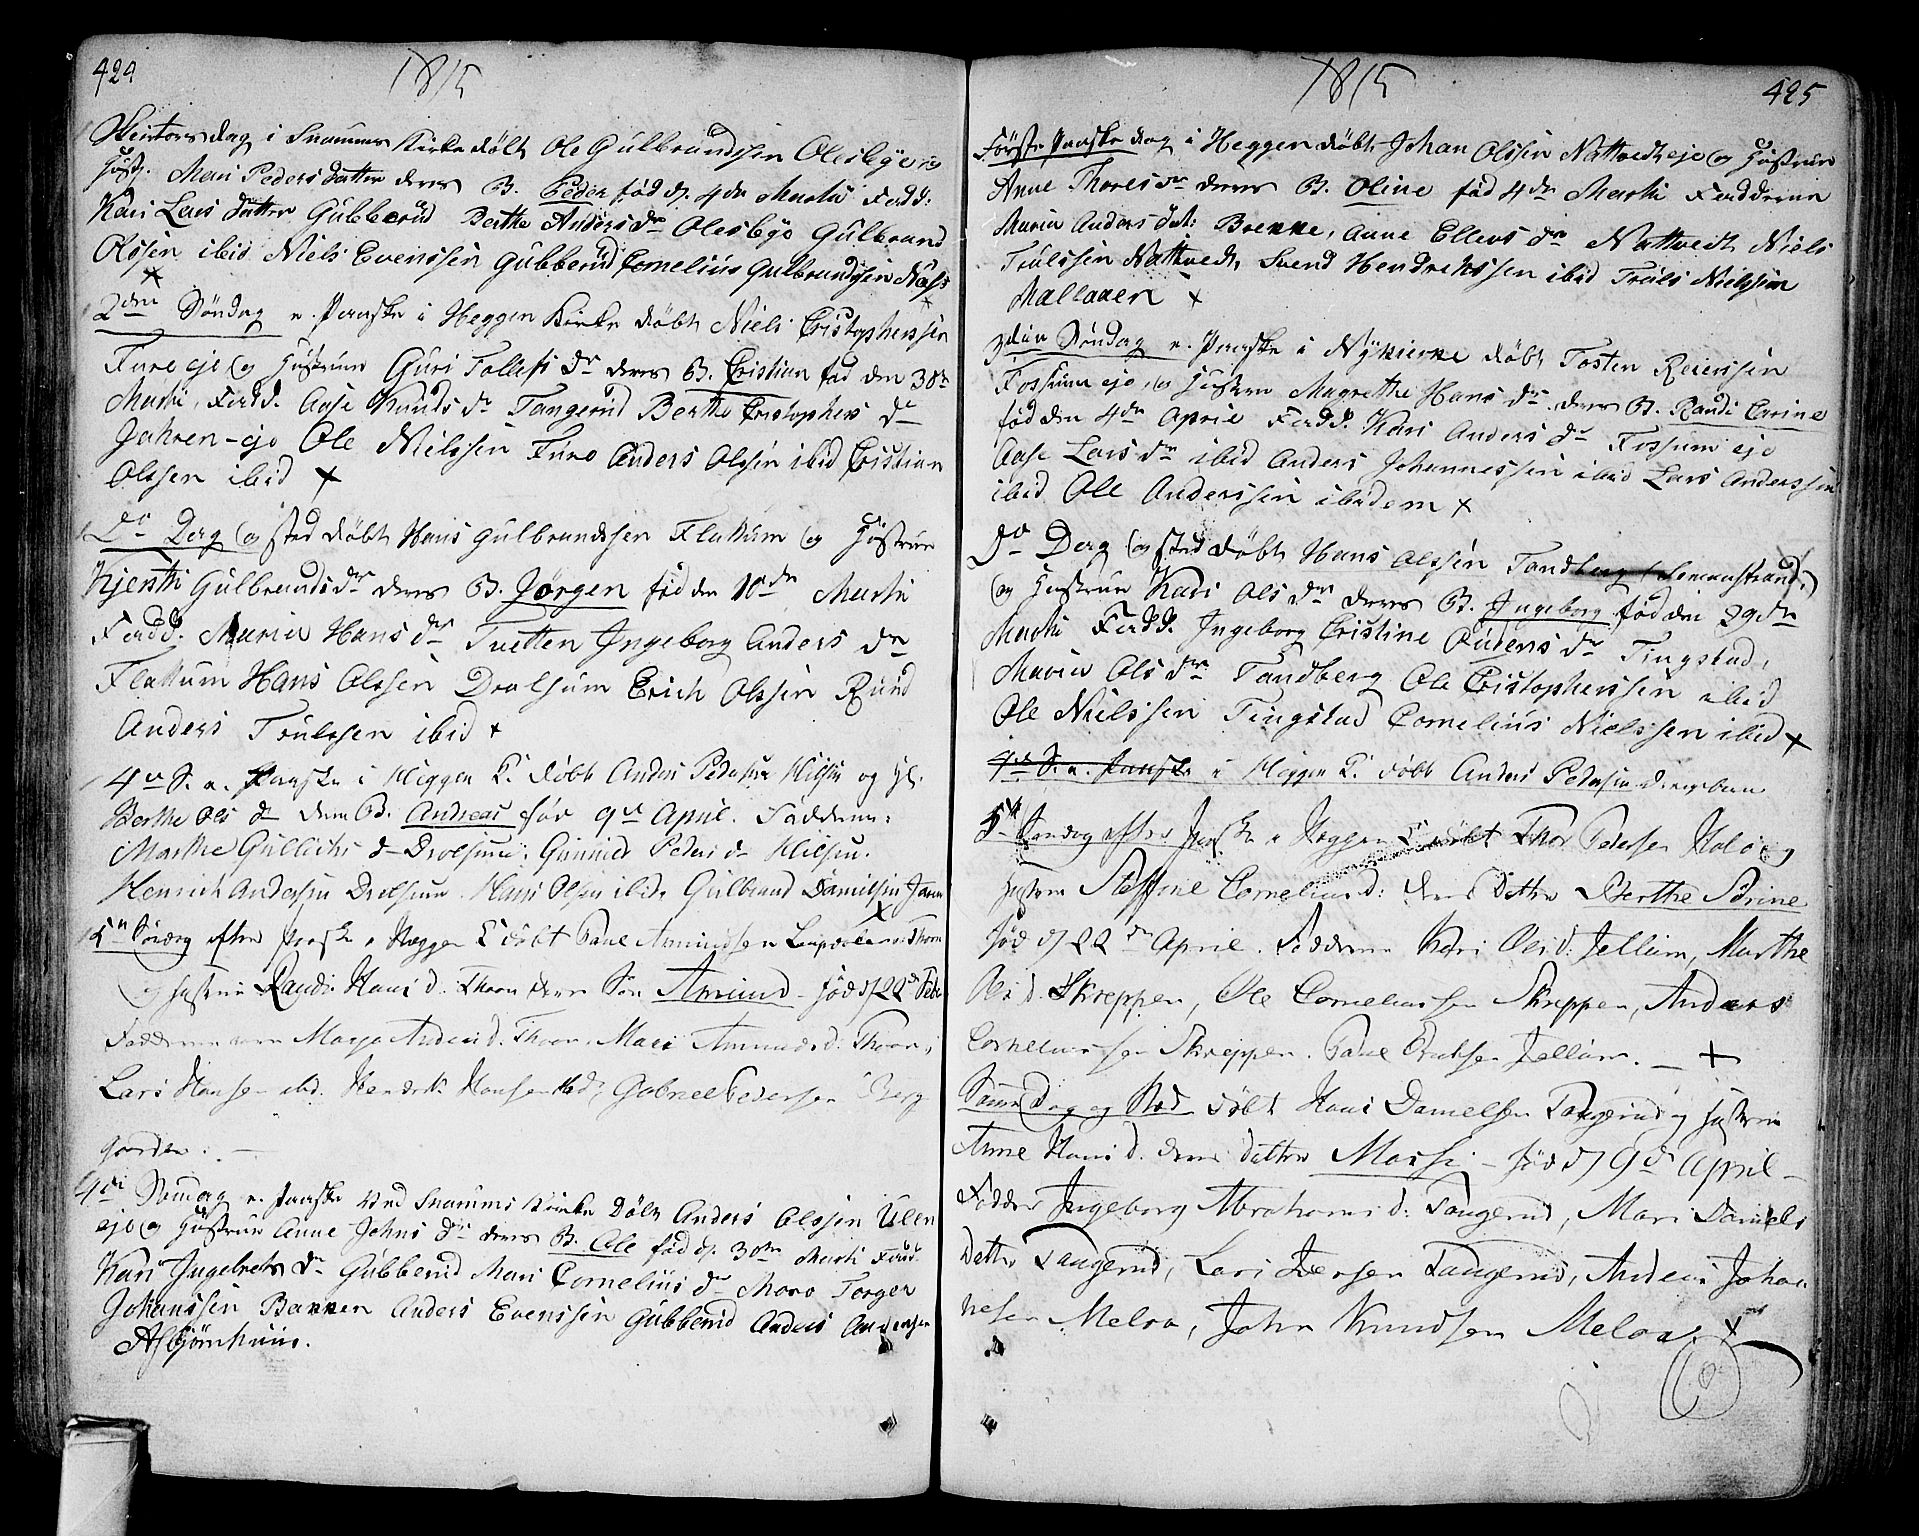 424
1815
Skiertorsdag i Snarums Kirke døbt Ole Gulbrandssen Olesbye og
Hust. Mari Peders datter deres B. Peder fød d. 4de Martii Fadd:
Kari Lars datter Gubberud Berthe Anders dr Olesbye Gulbrand
Olssen ibid Niels Evenssen Gubberud Cornelius Gulbrandssen Næss
2den Søndag e. Paaske i Heggen Kirke døbt Niels Cristophersen
Fure eje og Hustrue Guri Tollefs dr deres B. Cristian fød den 30te
Martii, Fadd. Aase Knuds dr Tangerud Berthe Cristophers dr
Jahren-eje Ole Nielssen Fure Anders Olssen ibid Cristian
Olssen ibid
Do Dag og sted døbt Hans Gulbrandssen Flattum og Hustrue
Kjersti Gulbrands dr deres B. Jørgen fød den 10de Martii
Fadd. Maria Hans dr Tvetten Ingeborg Anders dr
Flattum Hans Olssen Dralsum Erich Olssen Rund
Anders Trulssen ibid
4de S. e. Paaske i Heggen K. døbt Anders Pedersen og H.
Berthe Ols d deres B. Andreas fød 9de April. Faddere:
Marthe Gullichs d Drolsum, Gunnild Peders d
Henrich Andersen Drolsum Hans Olsen ibid, Gulbrand Danielsen
5te Søndag efter Paaske i Heggen K døbt Paul Amundsen Thorn
og Hustrue Randi Hans d. Thorn deres Søn Amund fød d 22de Febr
Fadderne vare Marja Anders d. Thorn, Mari Amunds d. Thorn,
Lars Hansen ibd. Hendrik Hansen ibd, Gabriel Pedersen Berg
gaarden.
4de Søndag e. Paaske ved Snarums Kirke Døbt Anders Olssen Ulen
eje og Hustrue Anne Johns dr deres B. Ole fød d. 30te Martii Fadd
Kari Ingebrets dr Gubberud Mari Cornelius dr Moro Torger
Johanssen Bakken Anders Evenssen Gubberud Anders Anderssen
Asbjørnhuus.
425
1815
Første Paaske dag i Heggen døbt Johan Olssen Nattvedt eje og Hustrue
Anne Thores dr deres B. Oline fød 4de Martii Fadderne
Maria Anders dat: Brekke, Anne Ellevs dr Nattvedt Niels
Trulssen Nattvedt, Svend Hendrichssen ibid Truls Nielssen
Mællaaen
3die Søndag e. Paaske i Nykirke døbt Tosten Reierssen
Fossum eje, og Hustrue Magrethe Hans dr. deres B. Randi Carine
fød den 4de Aprile Fadd. Kari Anders dr Fossum eje
Aase Lars dr ibid Anders Johannessen ibid Lars Anderssen
ibid Ole Anderssen ibidem
Do Dag og sted døbt Hans Olssen Tandberg
og Hustrue Kari Ols dr deres B. Ingeborg fød den 29de
Martii Fadd. Ingeborg Cristine Anders dr Tingstad,
Maria Ols dr Tandberg Ole Cristopherssen ibid
Ole Nielssen Tingstad Cornelius Nielssen ibid
4de S. e. Paaske i Heggen K. døbt Anders Pedersen
5te Søndag efter Paaske i Heggen K døbt Thor Pedersen og
Hustrue Steffine Cornelius d: deres Datter Berthe Sørine
fød d 22de April. Fadderne Kari Ols d. Jellum, Marthe
Ols d. Skreppen, Ole Corneliussen Skreppen, Anders
Corneliussen Skreppen. Paul Jellum.
Samme Dag og Sted døbt Hans Danielsen Tangerud og Hustrue
Anne Hans d. deres Datter Massi fød d 9de April
Faddere Ingeborg Abrahams d: Tangerud, Mari Daniels
Datter Tangerud, Lars Iversen Tangerud, Andreas Johan
nesen Meloa, John Knudsen Meloa.